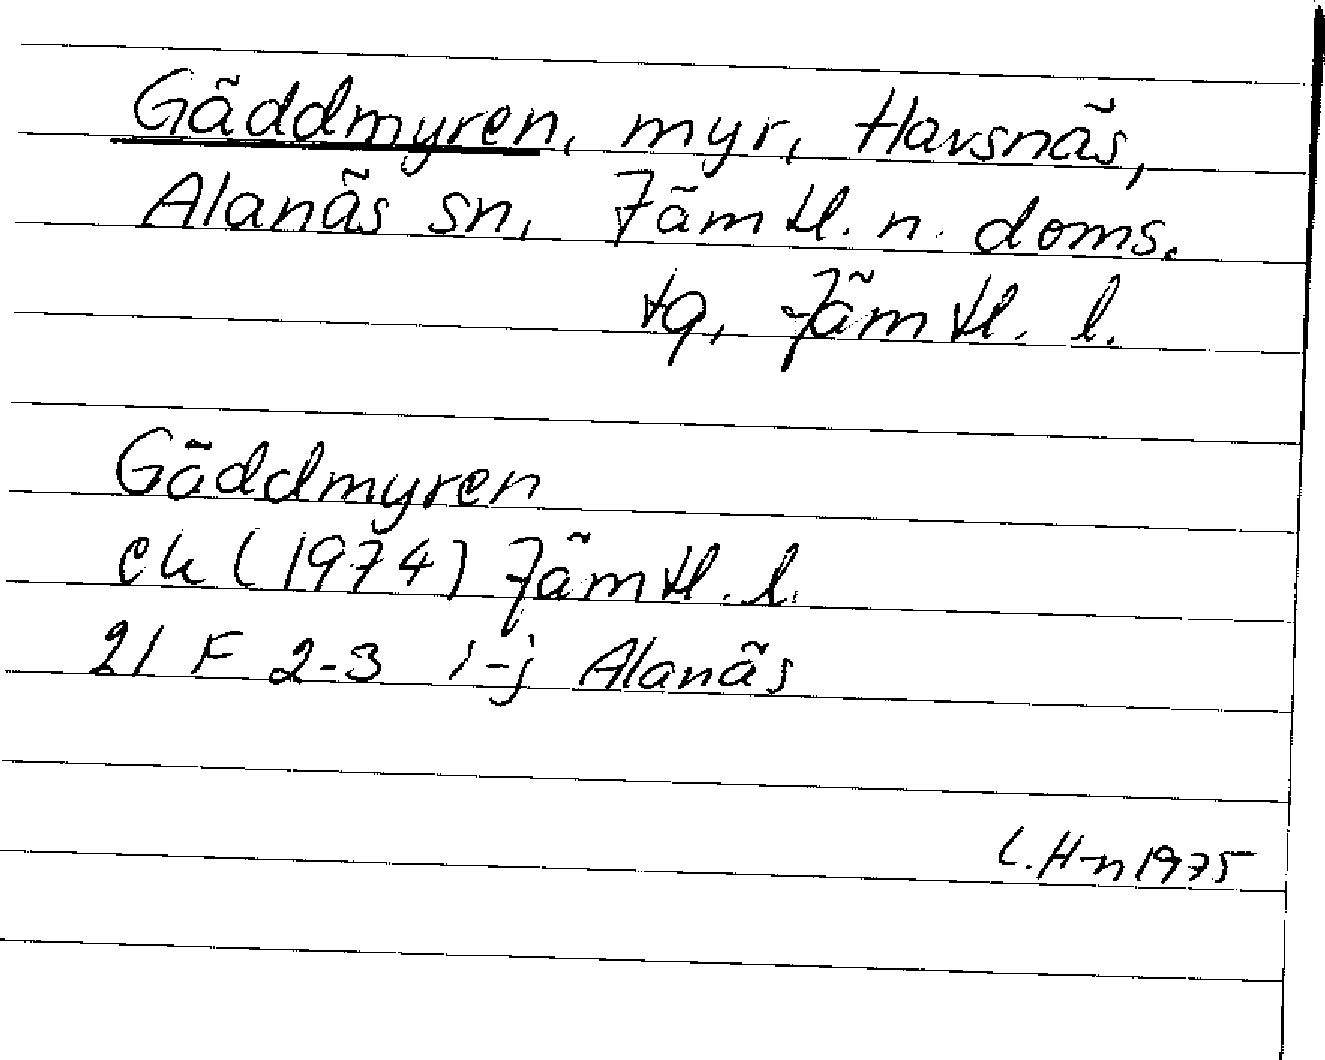 Gäddmyren, myr, Havsnäs,
Alanäs sn, Jämtl. n. doms.
tg, Jämtl. l.
Gäddmyren
ek (1974) Jämtl. l.
21 F 2-3 i-j Alanäs
L. H-n 1975